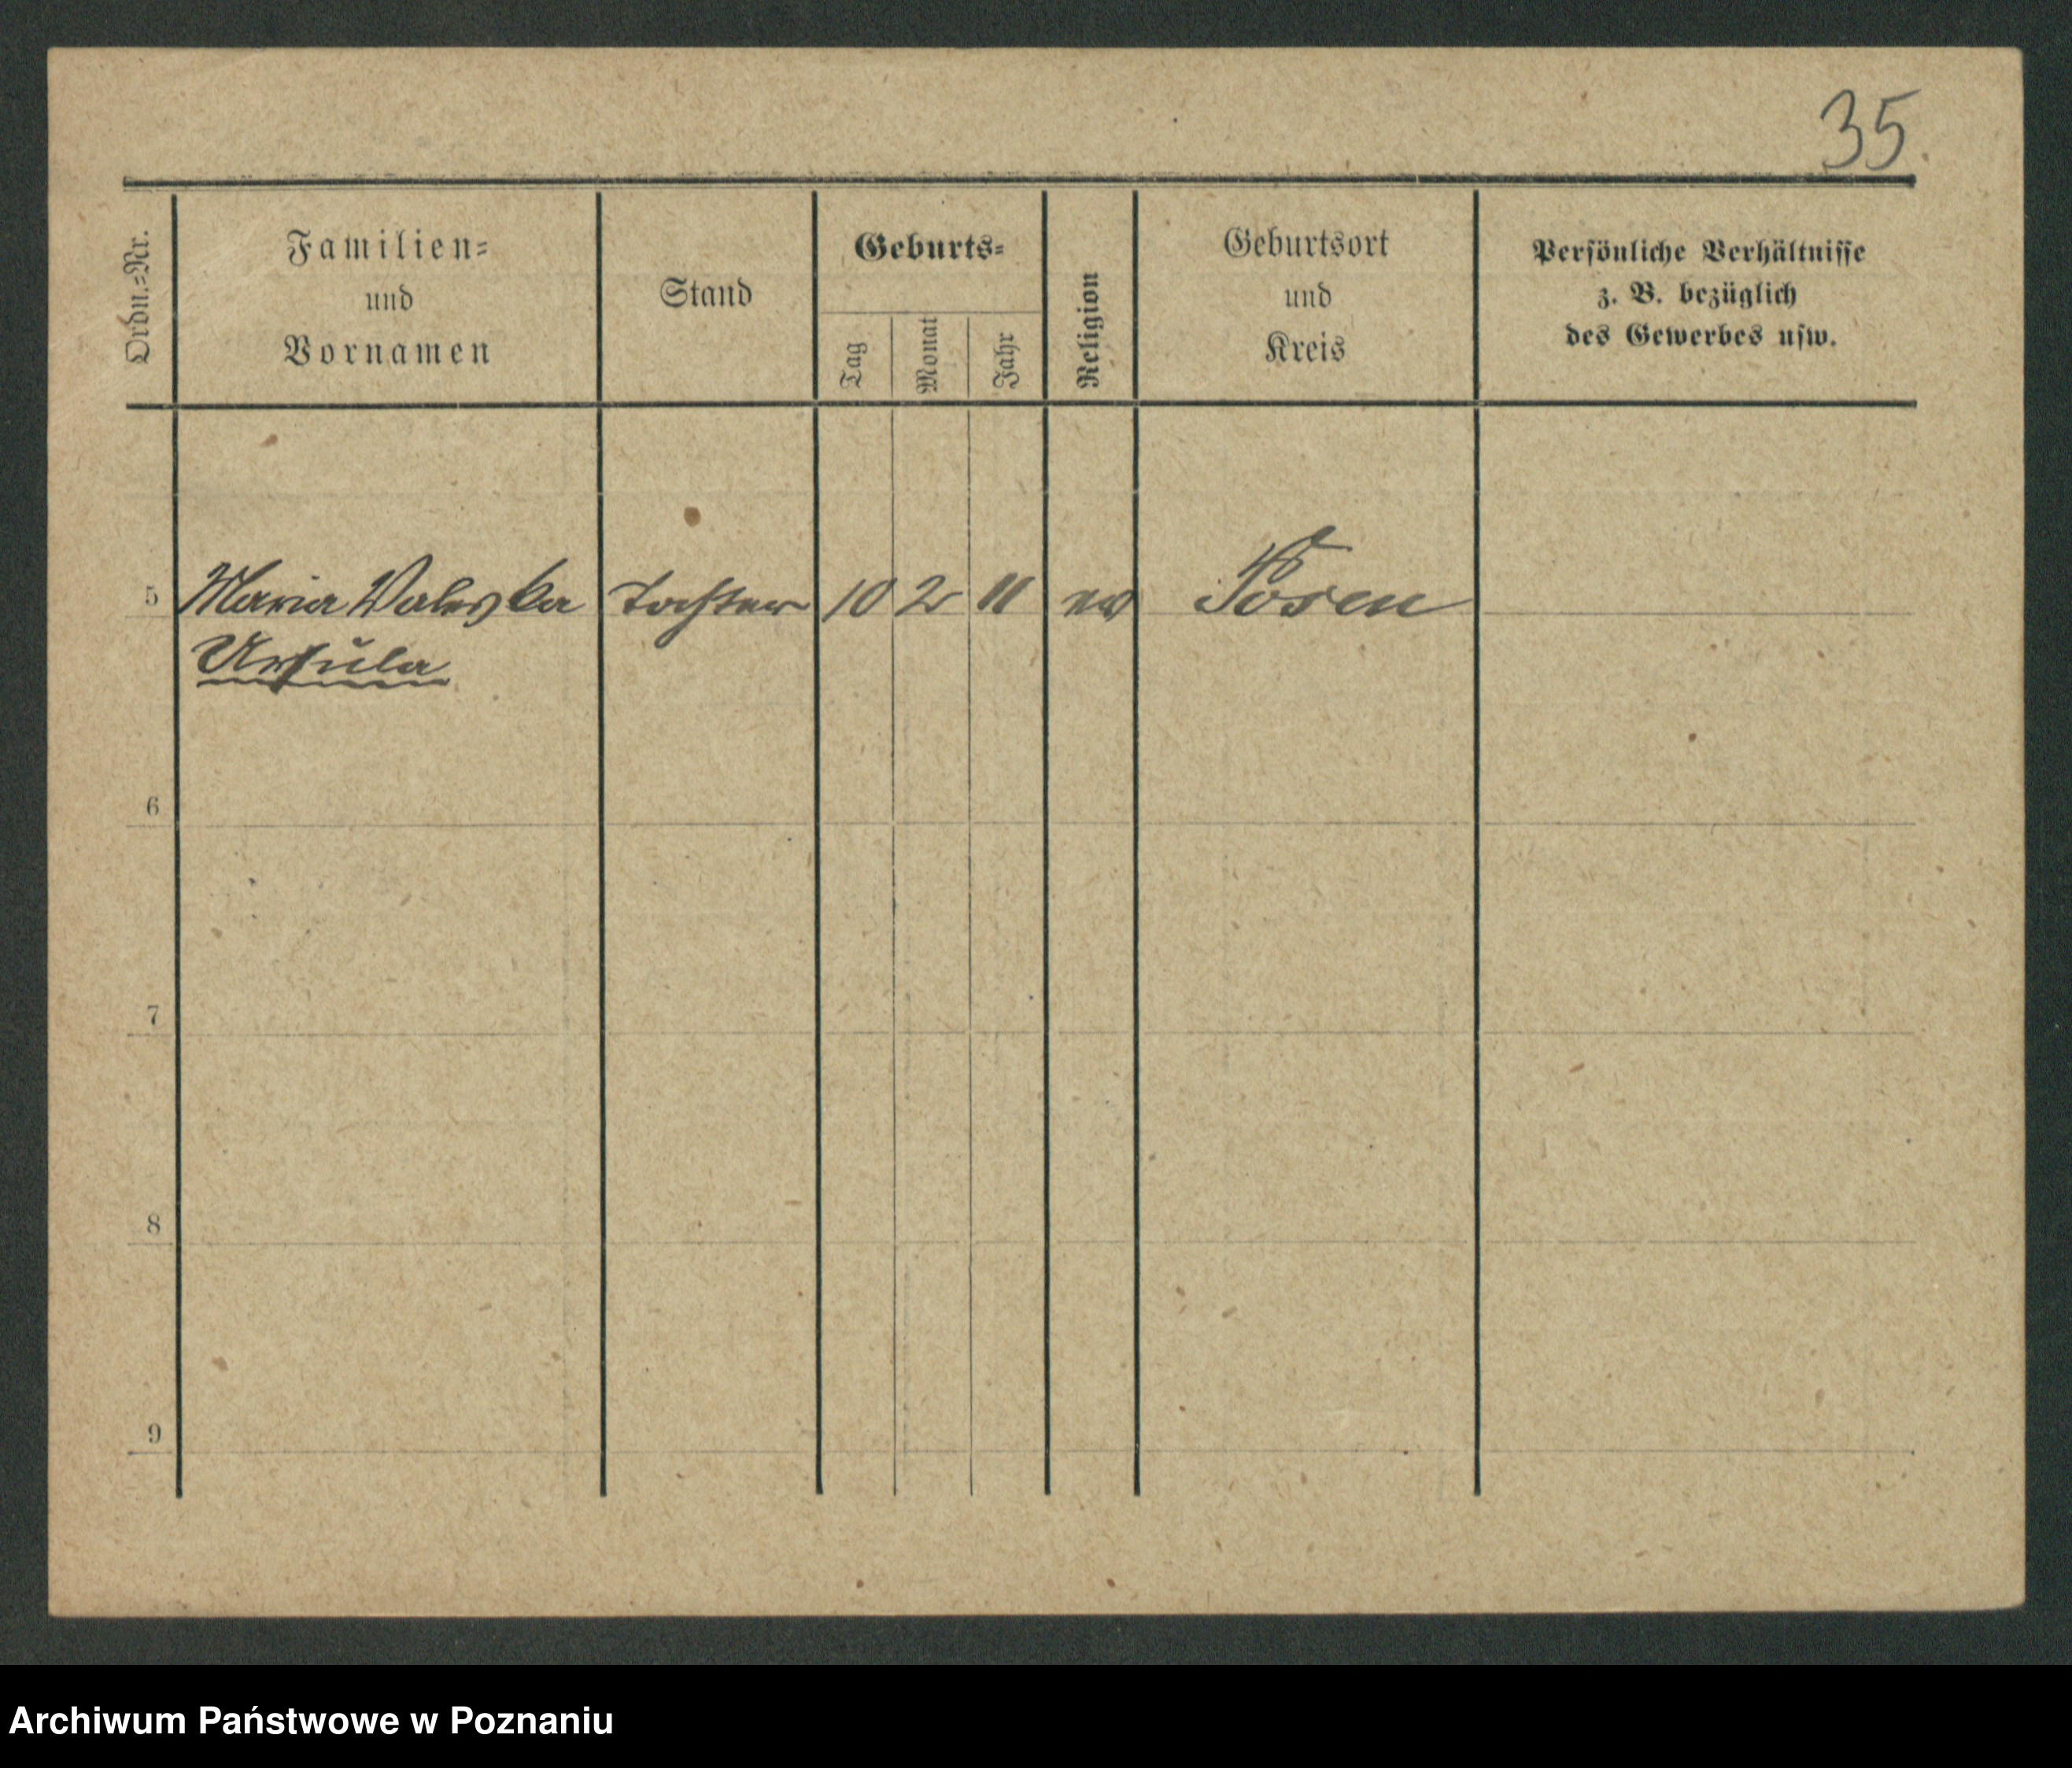 35
Ordn.=Nr.
Familien=
und
Vornamen
Stand
Geburts=
Tag
Monat
Jahr
Religion
Geburtsort
und
Kreis
Persönliche Verhältnisse
z. B. bezüglich
des Gewerbes usw.
5 Maria Valeska Tochter 10 2 11 ev Posen
Ursula
6
7
8
9
Archiwum Państwowe w Poznaniu